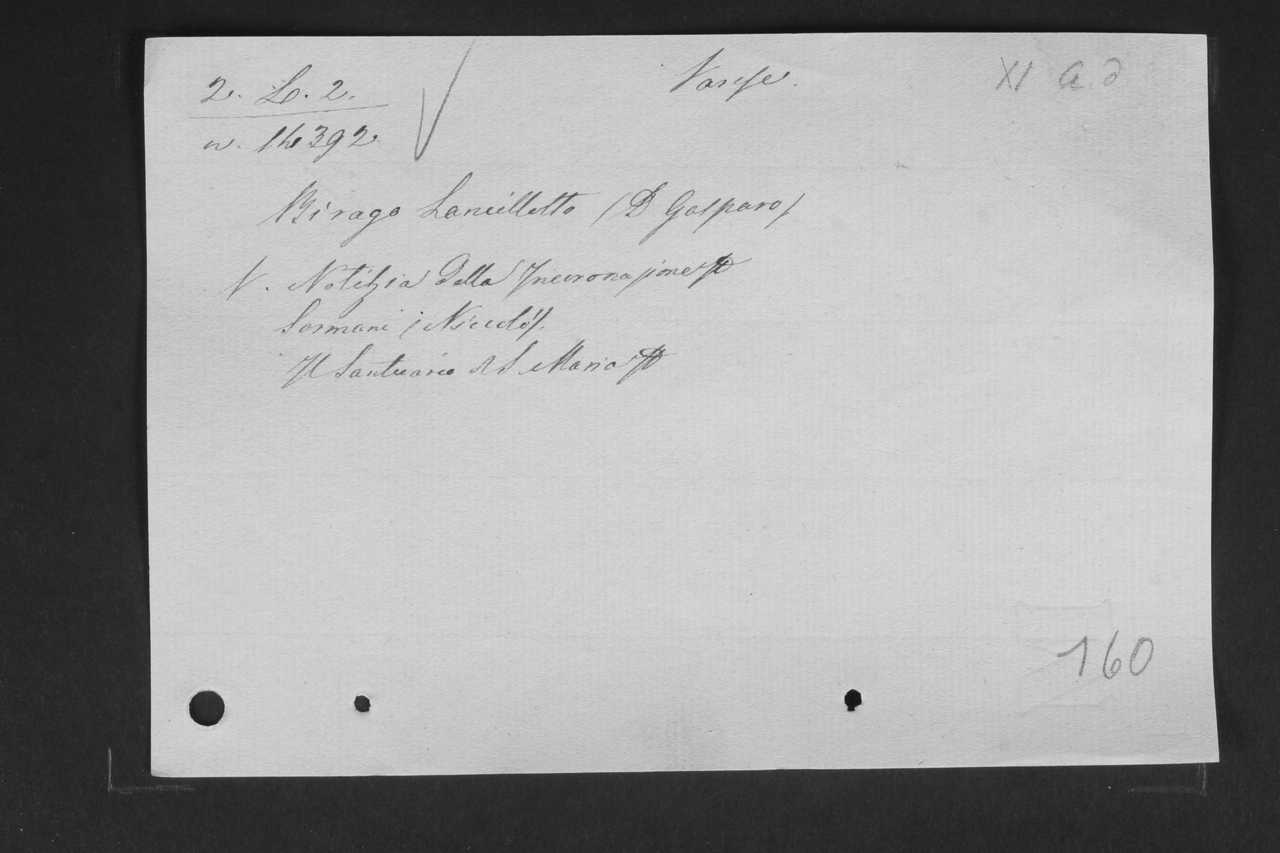 2. L. 2.
Varese.
XI a. d
n. 14392
Birago Lancillotto (D Gasparo)
V. Notizia della Incoronazione &
Sormani (Niccolò).
Il Santuario di S. Maria &
160